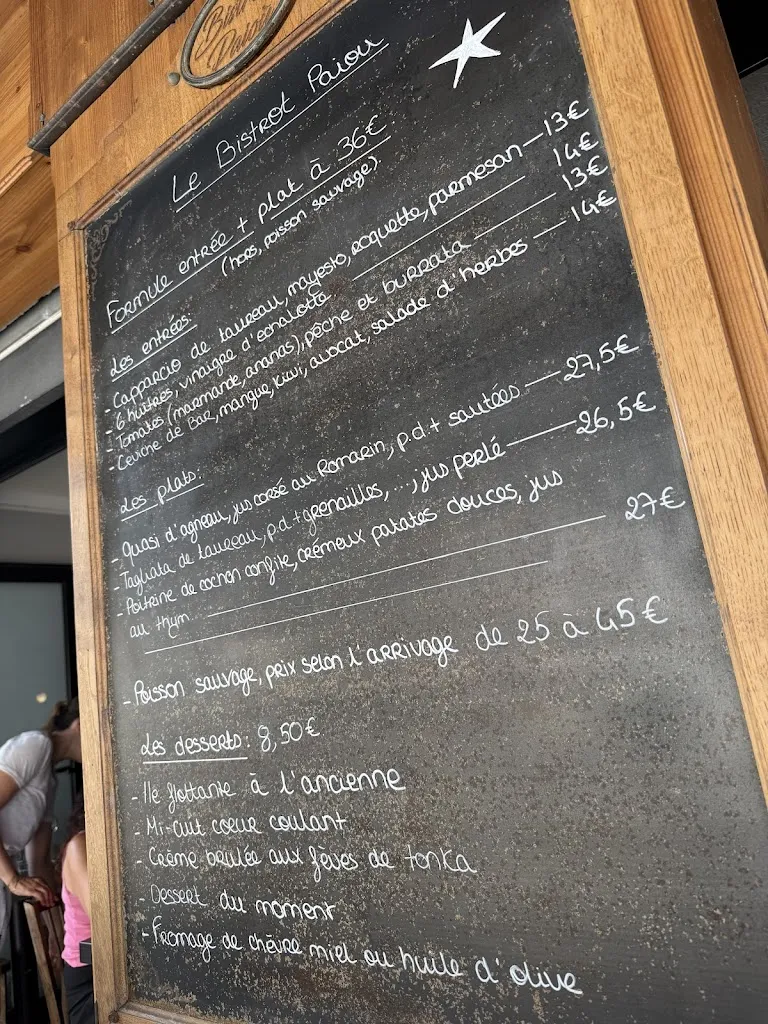 Le Bistrot Paiou
Formule entrée + plat à 36€
(hors, poisson sauvage).
Les entrées:
- Capparcio de taureau, mayesto, roquette, parmesan — 13€
- 6 huîtres, vinaigre d'echalotte — 14€
- Tomates (marmande, ananas), pêche et burrata — 13€
- Ceviche de Bar, mangue, kiwi, avocat, salade d'herbes — 14€
Les plats:
- Quasi d'agneau, jus corsé au Romarin, p.d.t sautées — 27,5€
- Tagliata de taureau, p.d.t grenailles, ..., jus perlé — 26,5€
- Poitrine de cochon confite, crémeux patates douces, jus
au thym — 27€
- Poisson sauvage, prix selon l'arrivage de 25 à 45€
Les desserts: 8,50€
- Ile flottante à l'ancienne
- Mi-cuit coeur coulant
- Crème brulée aux fèves de tonka
- Dessert du moment
- Fromage de chèvre miel ou huile d'olive